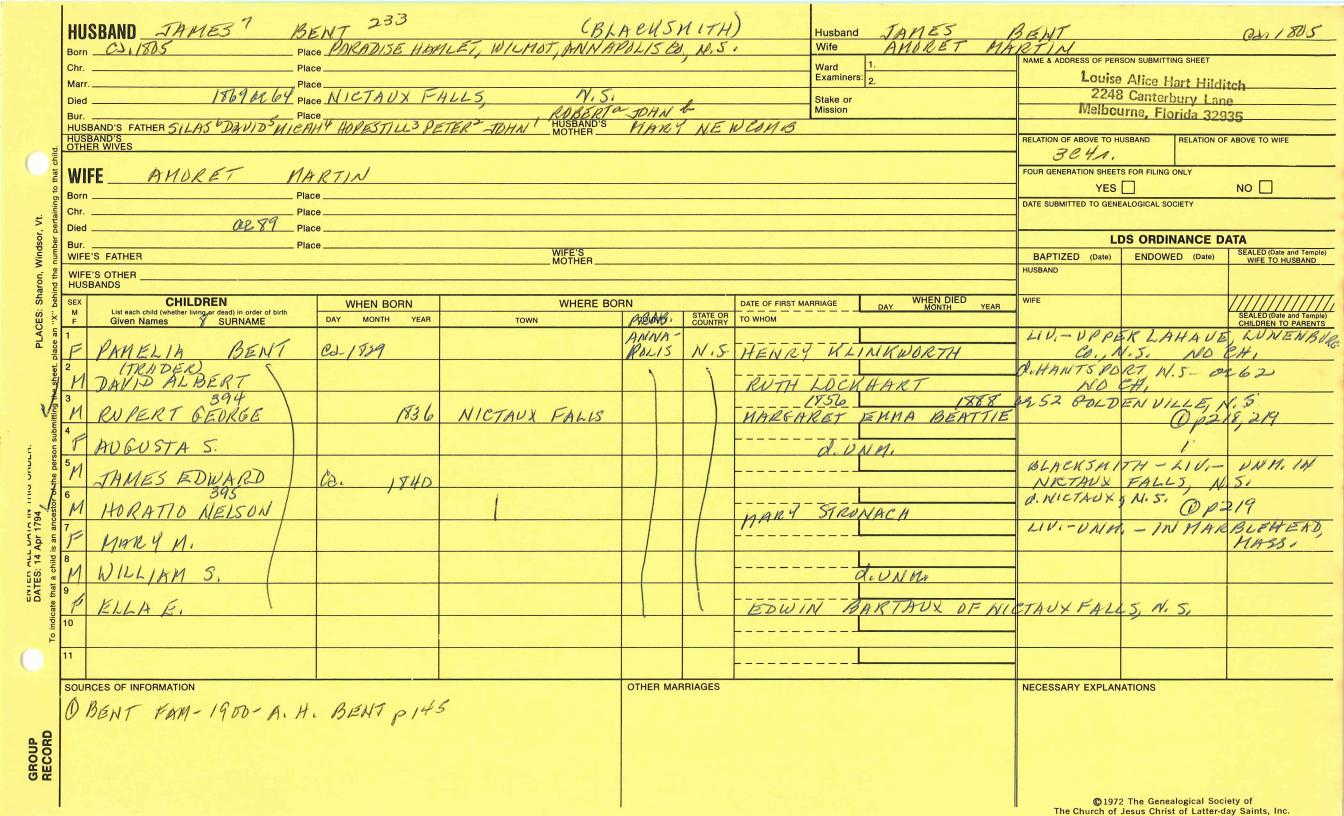 HUSBAND JAMES 7 BENT 233 (BLACKSMITH)
Born Ca. 1805 Place PARADISE HAMLET, WILMOT, ANNAPOLIS Co, N.S.
Chr. Place
Marr. Place
Died 1869 ae 64 Place NICTAUX FALLS, N.S.
Bur. Place ROBERT a JOHN b
HUSBAND'S FATHER SILAS 6 DAVID 5 MICAH 4 HOPESTILL 3 PETER 2 JOHN 1 HUSBAND'S MOTHER MARY NEWCOMB
HUSBAND'S OTHER WIVES
Husband JAMES BENT Ca. 1805
Wife AMORET MARTIN
Ward Examiners: 1.
2.
Stake or Mission
NAME & ADDRESS OF PERSON SUBMITTING SHEET
Louise Alice Hart Hilditch
2248 Canterbury Lane
Melbourne, Florida 32935
RELATION OF ABOVE TO HUSBAND RELATION OF ABOVE TO WIFE
3C4r.
FOUR GENERATION SHEETS FOR FILING ONLY
YES NO
DATE SUBMITTED TO GENEALOGICAL SOCIETY
WIFE AMORET MARTIN
Born Place
Chr. Place
Died ae 89 Place
Bur. Place
WIFE'S FATHER WIFE'S MOTHER
WIFE'S OTHER HUSBANDS
LDS ORDINANCE DATA
BAPTIZED (Date) ENDOWED (Date) SEALED (Date and Temple) WIFE TO HUSBAND
HUSBAND
WIFE
SEALED (Date and Temple) CHILDREN TO PARENTS
SEX M F CHILDREN WHEN BORN WHERE BORN DATE OF FIRST MARRIAGE WHEN DIED
List each child (whether living or dead) in order of birth
Given Names SURNAME DAY MONTH YEAR TOWN STATE OR COUNTRY TO WHOM DAY MONTH YEAR
1 F PAMELIA BENT Ca. 1829 ANNA-POLIS N.S. HENRY KLINKWORTH LIV.- UPPER LAHAVE, LUNENBURG Co., N.S. NO CH.
2 M (TRADER) DAVID ALBERT RUTH LOCKHART d. HANTSPORT N.S- ae 62 NO CH.
3 M 394 RUPERT GEORGE 1836 NICTAUX FALLS 1856 MARGARET EMMA BEATTIE 1888 ae 52 GOLDENVILLE, N.S ① p218, 219
4 F AUGUSTA S. d. UNM.
5 M JAMES EDWARD Ca. 1840 BLACKSMITH - LIV.- UNM. IN NICTAUX FALLS, N.S.
6 M 395 HORATIO NELSON MARY STRONACH d. NICTAUX, N.S. ① p219
7 F MARY M. LIV.-UNM. - IN MARBLEHEAD, MASS.
8 M WILLIAM S. d. UNM.
9 F ELLA E. EDWIN BARTAUX OF NICTAUX FALLS, N.S.
10
11
SOURCES OF INFORMATION OTHER MARRIAGES NECESSARY EXPLANATIONS
① BENT FAM- 1900- A. H. BENT p.145
©1972 The Genealogical Society of
The Church of Jesus Christ of Latter-day Saints, Inc.
GROUP RECORD
DATES: 14 Apr 1794
PLACES: Sharon, Windsor, Vt.
To indicate that a child is an ancestor of the person submitting the sheet, place an "X" behind the number pertaining to that child.